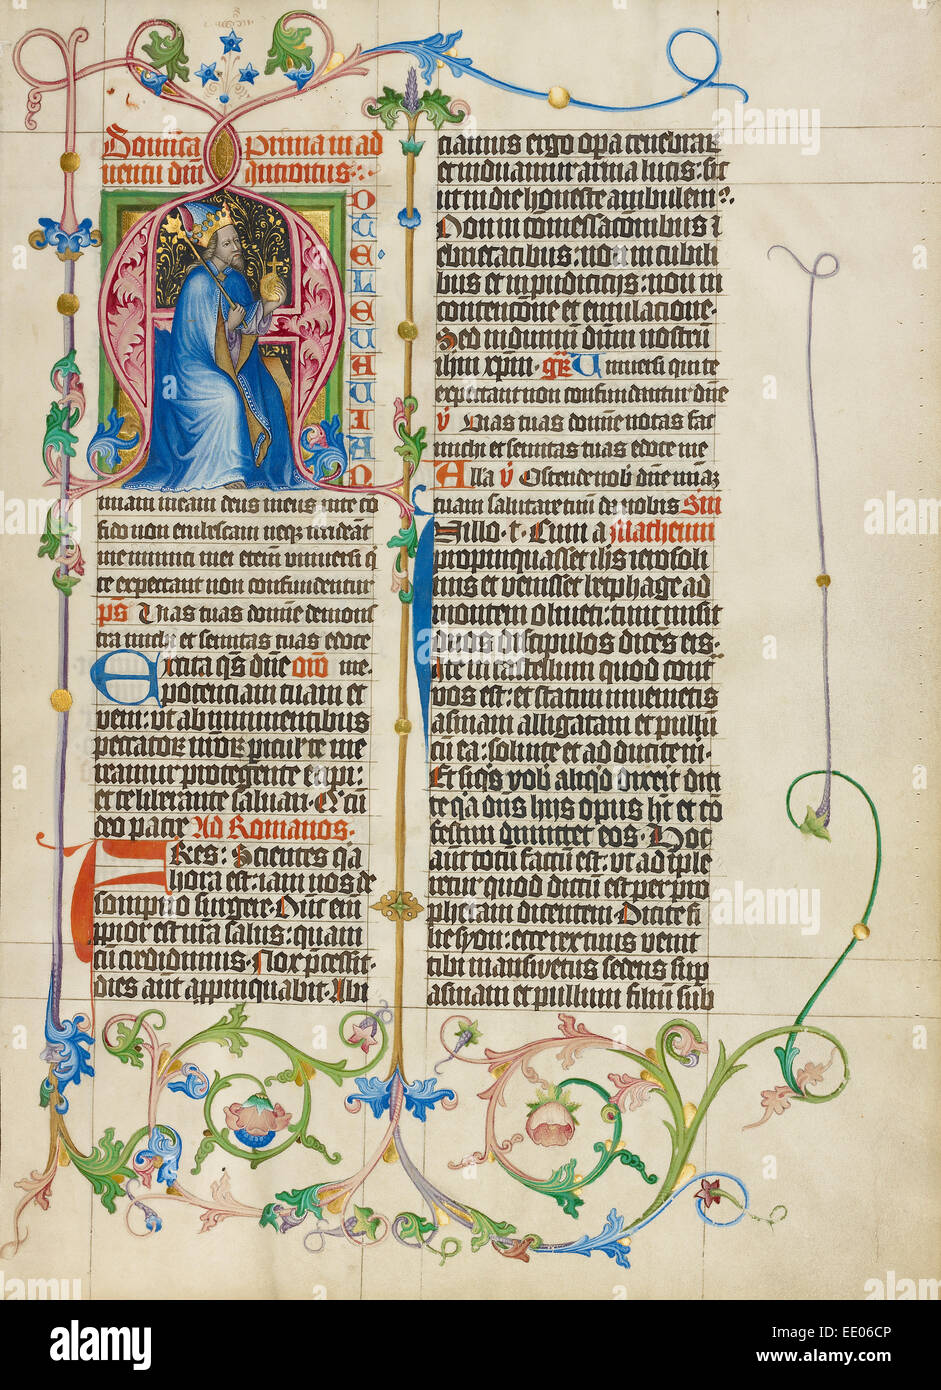 Dominica prima in ad
uentu dni Introitus
A
D TE LEUAUI AN
imam meam deus meus in te co
fido non erubescam neqz irrideāt
me inimici mei etenim uniuersi q
te expectant non confundentur
ps Vias tuas domine demons
tra michi et semitas tuas edoce
Excita qs dne oro me
potenciam tuam et
veni: ut ab imminentibus
peccatorum nrorum piculis te me
reamur protegente eripi:
et te liberante saluari. Qui cu
deo patre Ad Romanos.
Fres: Scientes q̄a
hora est: iam nos de
sompno surgere. Nunc eni
ppior est nra salus: quam
cu credidimus. Nox pcessit.
dies aut appinquabit. Abi
ciamus ergo opa tenebrarum
et induamur arma lucis: sic
ut in die honeste ambulem9.
Non in comessacionibus et
ebrietatibus: non in cubili
bus et inpudicicijs: non in
contencione et emulacione.
Sed induimini dnm nostru
ihm xpm. gr Uniuersi qui te
expectant non confundentur dne
v Vias tuas domine notas fac
michi et semitas tuas edoce me
Alla v Ostende nob dne miam
tuam salutare tuu da nobis Sm
In illo t. Cum a Matheum
propinquasset ihs ierosoli
mis et venisset betphage ad
montem oliueti: tunc misit
duos discipulos dicens eis.
Ite in castellum quod cont
vos est: et statim inuenietis
asinam alligatam et pullu
cu ea: soluite et adducite m.
Et siqs vob aliqd dixerit dici
te qa dns hijs opus ht et co
festim dimittet eos. Hoc
aut totu factu est: ut adimple
retur quod dictu est per pro
phetam dicentem. Dicite fi
lie syon: ecce rex tuus venit
tibi mansuetus sedens sup
asinam et pullum filiu sub
alamy
Image ID: EE06CP
www.alamy.com